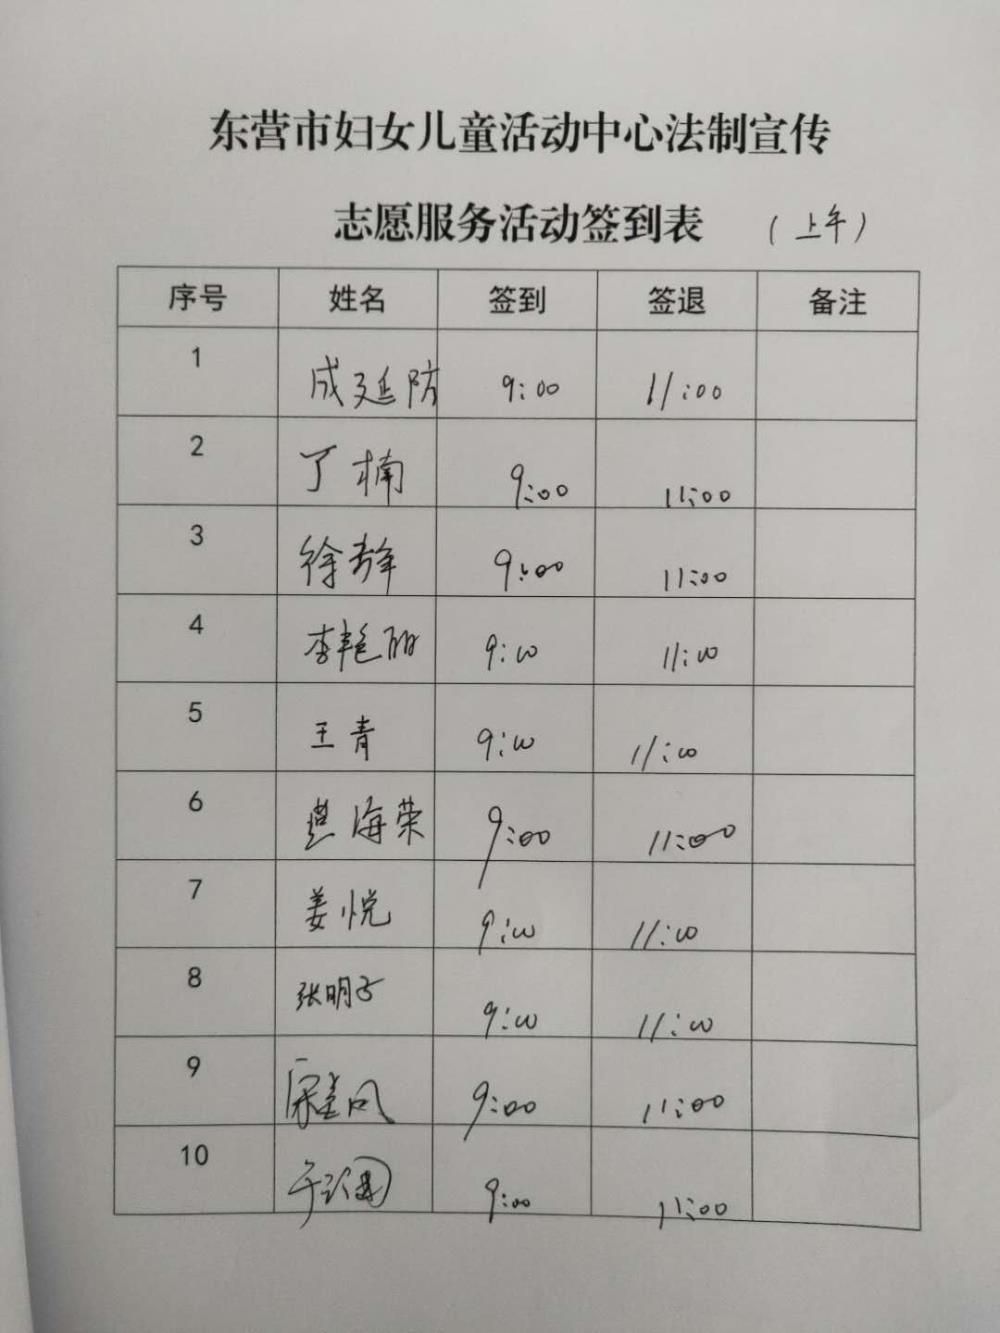 东营市妇女儿童活动中心法制宣传
志愿服务活动签到表 （上午）
序号 姓名 签到 签退 备注
1 成延防 9:00 11:00
2 丁楠 9:00 11:00
3 徐静 9:00 11:00
4 李艳丽 9:00 11:00
5 王青 9:00 11:00
6 燕海荣 9:00 11:00
7 姜悦 9:00 11:00
8 张明子 9:00 11:00
9 9:00 11:00
10 9:00 11:00